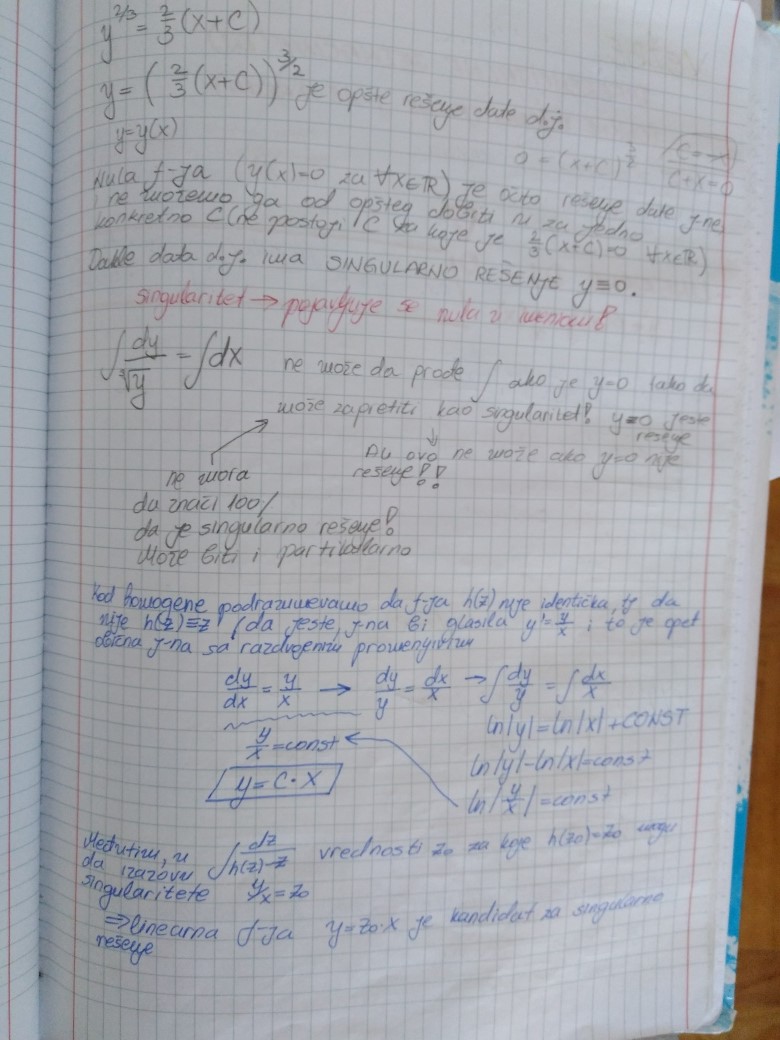 y^{2/3} = \frac{2}{3}(x+C)
y = (\frac{2}{3}(x+C))^{3/2} je opšte rešenje date d.j.
y=y(x)
0 = (x+C)^{\frac{3}{2}} C=-x
C+x=0
Nula f-ja (y(x)=0 za ∀x∈ℝ) je očito rešenje date j-ne
i ne možemo ga od opšteg dobiti ni za jedno
konkretno C (ne postoji C za koje je \frac{2}{3}(x+C)=0 ∀x∈ℝ)
Dakle data d.j. ima SINGULARNO REŠENJE y≡0.
singularitet → pojavljuje se nula u imeniocu!
∫\frac{dy}{\sqrt[3]{y}} = ∫dx ne može da prođe ∫ ako je y=0 tako da
može zapretiti kao singularitet! y≡0 jeste
rešenje
Ali ovo ne može ako y=0 nije
rešenje!!
ne mora
da znači 100%
da je singularno rešenje!
Može biti i partikularno
Kod homogene podrazumevamo da f-ja h(z) nije identička, tj da
nije h(z)≡z (da jeste, j-na bi glasila y'=\frac{y}{x} i to je opet
obična j-na sa razdvojenim promenjivim
\frac{dy}{dx} = \frac{y}{x} → \frac{dy}{y} = \frac{dx}{x} → ∫\frac{dy}{y} = ∫\frac{dx}{x}
ln|y|=ln|x|+CONST
\frac{y}{x}=const ln|y|-ln|x|=const
y=C·x ln|\frac{y}{x}|=const
Međutim, u ∫\frac{dz}{h(z)-z} vrednosti z₀ za koje h(z₀)=z₀ mogu
da izazovu
singularitete y/x=z₀
⇒ linearna f-ja y=z₀·x je kandidat za singularno
rešenje